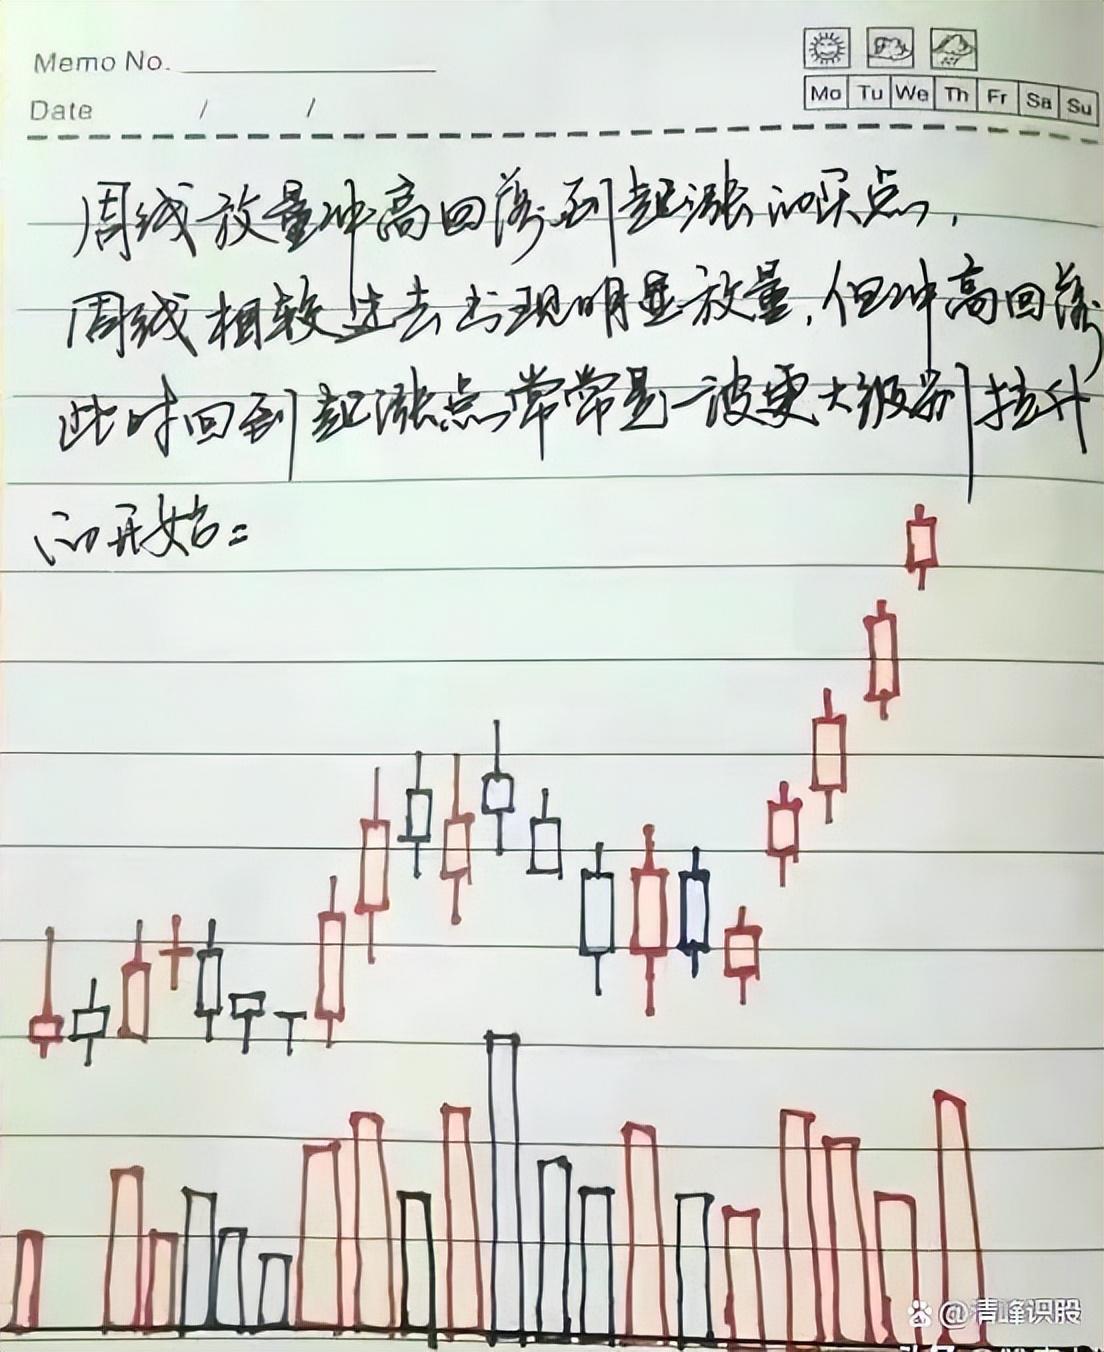 Memo No.
Date / /
Mo Tu We Th Fr Sa Su
周线放量冲高回落到起涨的买点,
周线相较过去出现明显放量,但冲高回落
此时回到起涨点常常是一波更大级别拉升
的开始:
@清峰识股